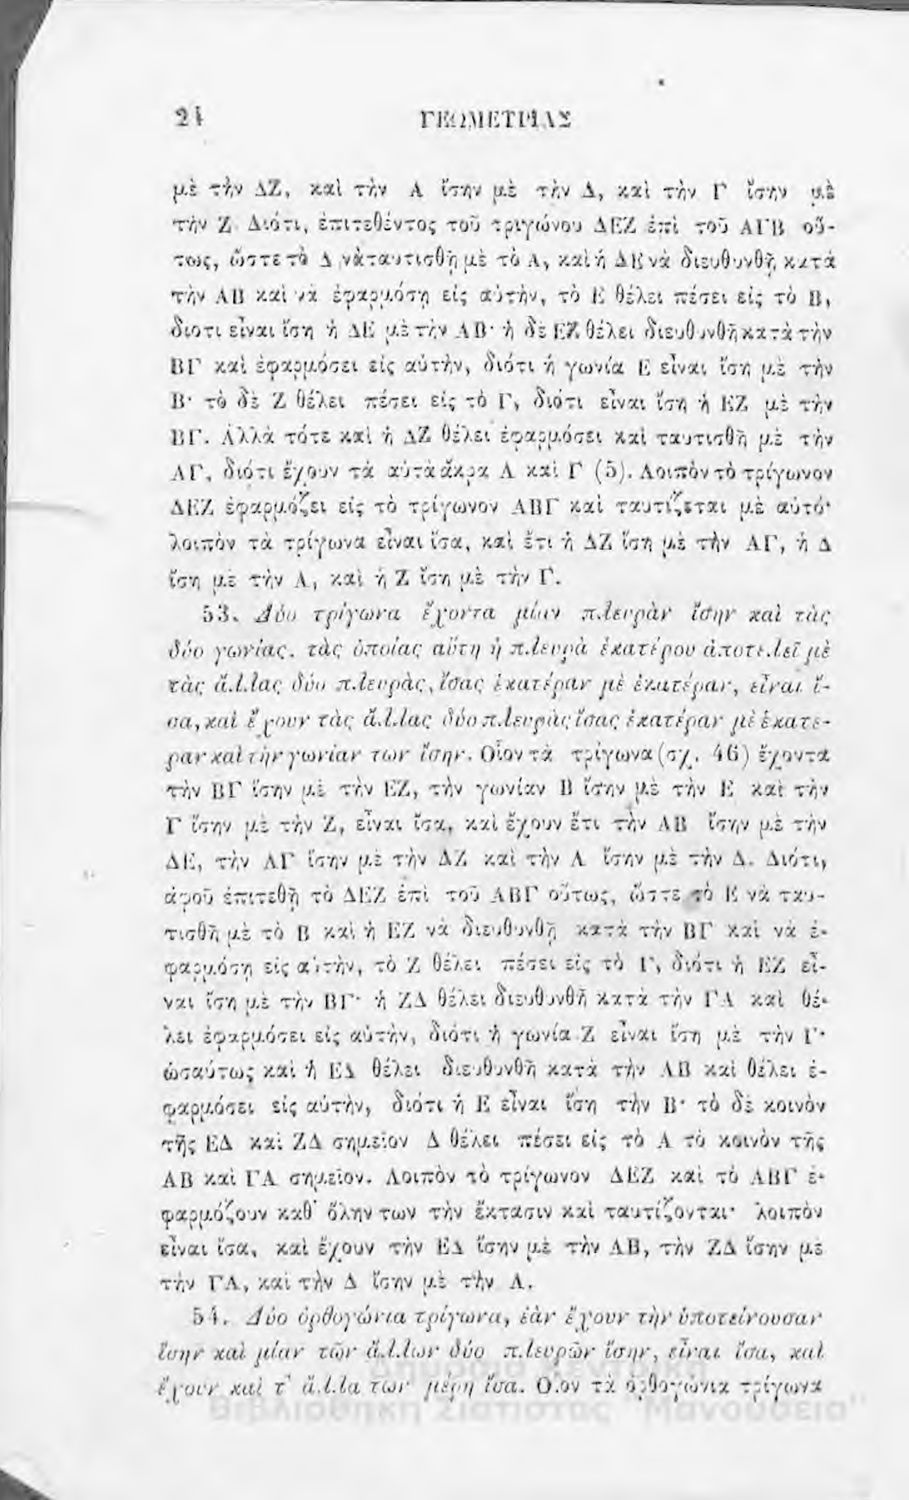 24 ΓΕΩΜΕΤΡΙΑΣ
μὲ τὴν ΔΖ, καὶ τὴν Α ἴσην μὲ τὴν Δ, καὶ τὴν Γ ἴσην μὲ
τὴν Ζ. Διότι, ἐπιτεθέντος τοῦ τριγώνου ΔΕΖ ἐπὶ τοῦ ΑΓΒ οὕ-
τως, ὥστε τὸ Δ νὰ ταυτισθῇ μὲ τὸ Α, καὶ ἡ ΔΕ νὰ διευθυνθῇ κατὰ
τὴν ΑΒ καὶ νὰ ἐφαρμόσῃ εἰς αὐτὴν, τὸ Ε θέλει πέσει εἰς τὸ Β,
διοτι εἶναι ἴση ἡ ΔΕ μὲ τὴν ΑΒ· ἡ δὲ ΕΖ θέλει διευθυνθῆ κατὰ τὴν
ΒΓ καὶ ἐφαρμόσει εἰς αὐτὴν, διότι ἡ γωνία Ε εἶναι ἴση μὲ τὴν
Β· τὸ δὲ Ζ θέλει πέσει εἰς τὸ Γ, διότι εἶναι ἴση ἡ ΕΖ μὲ τὴν
ΒΓ. Ἀλλὰ τότε καὶ ἡ ΔΖ θέλει ἐφαρμόσει καὶ ταυτισθῆ μὲ τὴν
ΑΓ, διότι ἔχουν τὰ αὐτὰ ἄκρα Α καὶ Γ (5). Λοιπὸν τὸ τρίγωνον
ΔΕΖ ἐφαρμόζει εἰς τὸ τρίγωνον ΑΒΓ καὶ ταυτίζεται μὲ αὐτό·
λοιπὸν τὰ τρίγωνα εἶναι ἴσα, καὶ ἔτι ἡ ΔΖ ἴση μὲ τὴν ΑΓ, ἡ Δ
ἴση μὲ τὴν Α, καὶ ἡ Ζ ἴση μὲ τὴν Γ.
53. Δύο τρίγωνα ἔχοντα μίαν πλευρὰν ἴσην καὶ τὰς
δύο γωνίας, τὰς ὁποίας αὕτη ἡ πλευρὰ ἑκατέρου ἀποτελεῖ μὲ
τὰς ἄλλας δύο πλευρὰς, ἴσας ἑκατέραν μὲ ἑκατέραν, εἶναι ἴ-
σα, καὶ ἔχουν τὰς ἄλλας δύο πλευρὰς ἴσας ἑκατέραν μὲ ἑκατέ-
ραν καὶ τὴν γωνίαν των ἴσην. Οἷον τὰ τρίγωνα (σχ. 46) ἔχοντα
τὴν ΒΓ ἴσην μὲ τὴν ΕΖ, τὴν γωνίαν Β ἴσην μὲ τὴν Ε καὶ τὴν
Γ ἴσην μὲ τὴν Ζ, εἶναι ἴσα, καὶ ἔχουν ἔτι τὴν ΑΒ ἴσην μὲ τὴν
ΔΕ, τὴν ΑΓ ἴσην μὲ τὴν ΔΖ καὶ τὴν Α ἴσην μὲ τὴν Δ. Διότι,
ἀφοῦ ἐπιτεθῇ τὸ ΔΕΖ ἐπὶ τοῦ ΑΒΓ οὕτως, ὥστε τὸ Ε νὰ ταυ-
τισθῇ μὲ τὸ Β καὶ ἡ ΕΖ νὰ διευθυνθῇ κατὰ τὴν ΒΓ καὶ νὰ ἐ-
φαρμόσῃ εἰς αὐτὴν, τὸ Ζ θέλει πέσει εἰς τὸ Γ, διότι ἡ ΕΖ εἶ-
ναι ἴση μὲ τὴν ΒΓ· ἡ ΖΔ θέλει διευθυνθῆ κατὰ τὴν ΓΑ καὶ θέ-
λει ἐφαρμόσει εἰς αὐτὴν, διότι ἡ γωνία Ζ εἶναι ἴση μὲ τὴν Γ·
ὡσαύτως καὶ ἡ ΕΔ θέλει διευθυνθῆ κατὰ τὴν ΑΒ καὶ θέλει ἐ-
φαρμόσει εἰς αὐτὴν, διότι ἡ Ε εἶναι ἴση τὴν Β· τὸ δὲ κοινὸν
τῆς ΕΔ καὶ ΖΔ σημεῖον Δ θέλει πέσει εἰς τὸ Α τὸ κοινὸν τῆς
ΑΒ καὶ ΓΑ σημεῖον. Λοιπὸν τὸ τρίγωνον ΔΕΖ καὶ τὸ ΑΒΓ ἐ-
φαρμόζουν καθ' ὅλην των τὴν ἔκτασιν καὶ ταυτίζονται· λοιπὸν
εἶναι ἴσα, καὶ ἔχουν τὴν ΕΔ ἴσην μὲ τὴν ΑΒ, τὴν ΖΔ ἴσην μὲ
τὴν ΓΑ, καὶ τὴν Δ ἴσην μὲ τὴν Α.
54. Δύο ὀρθογώνια τρίγωνα, ἐὰν ἔχουν τὴν ὑποτείνουσαν
ἴσην καὶ μίαν τῶν ἄλλων δύο πλευρῶν ἴσην, εἶναι ἴσα, καὶ
ἔχουν καὶ τ' ἄλλα των μέρη ἴσα. Οἷον τὰ ὀρθογώνια τρίγωνα
Βιβλιοθήκη Σιάτιστας "Μανούσεια"